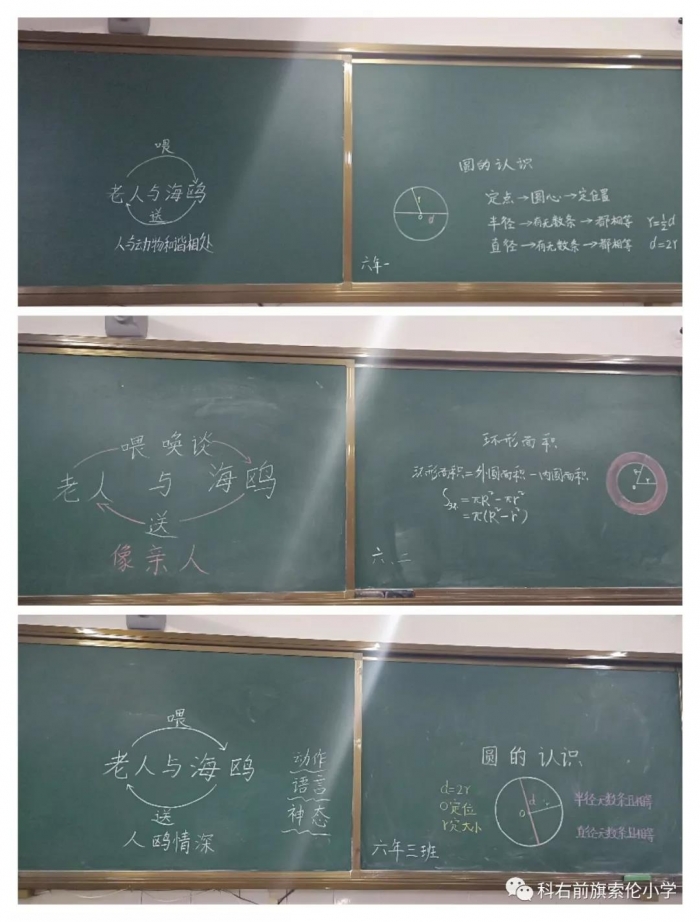 喂
老人与海鸥
送
人与动物和谐相处
圆的认识
r
o
d
定点→圆心→定位置
半径→有无数条→都相等 r=½d
直径→有无数条→都相等 d=2r
六年一
喂 唤 谈
老人 与 海鸥
送
像亲人
环形面积
环形面积=外圆面积-内圆面积
S环=πR²-πr²
=π(R²-r²)
R
r
o
六、二
喂
老人与海鸥
送
人鸥情深
动作
语言
神态
圆的认识
d=2r
O定位
r定大小
d
r
O
半径无数条且相等
直径无数条且相等
六年三班
科右前旗索伦小学